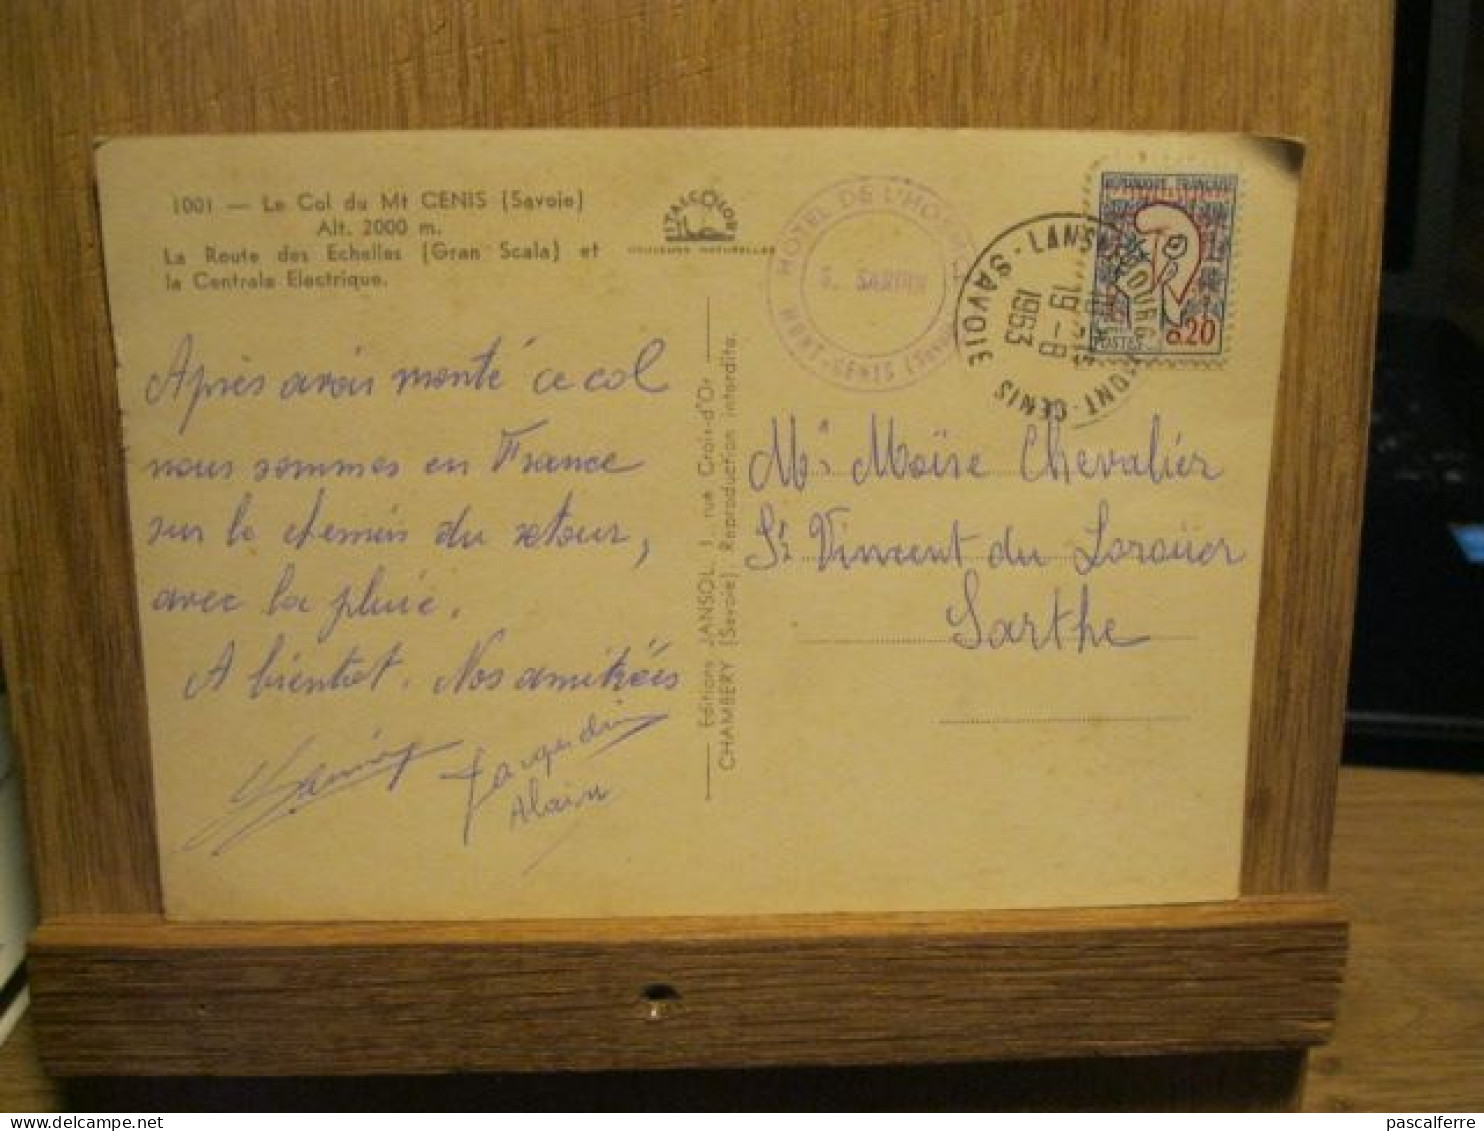 1001 — Le Col du Mt CENIS (Savoie)
Alt. 2000 m.
La Route des Echelles (Gran Scala) et
la Centrale Electrique.
ITALCOLOR
COULEURS NATURELLES
HOTEL DE L'HOSPICE
MONT-CENIS (Savoie)
LANSLEBOURG-MONT-CENIS
19-8
1963
SAVOIE
REPUBLIQUE FRANÇAISE
POSTES
0.20
Après avoir monté ce col
nous sommes en France
sur le chemin du retour,
avec la pluie.
A bientot. Nos amitiées
Jacqueline
Alain
Editions JANSOL, 1, rue Croix-d'Or
CHAMBERY (Savoie). Reproduction interdite.
Mr Moïse Chevalier
St Vincent du Lorouër
Sarthe
pascalferre